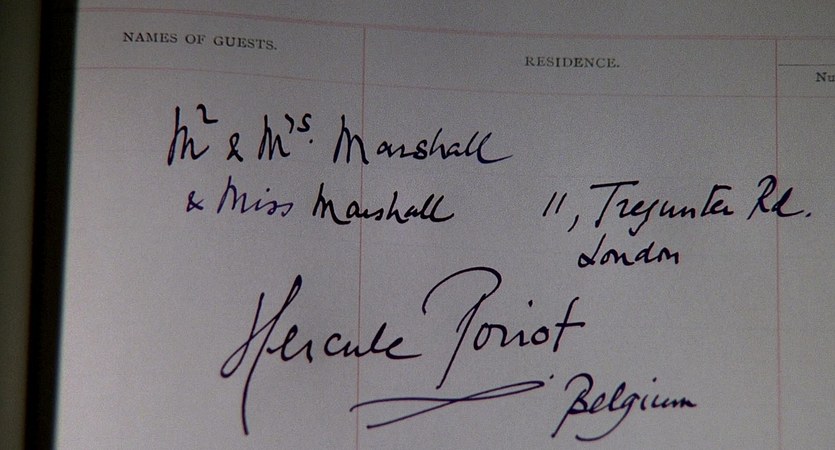 NAMES OF GUESTS. RESIDENCE. Nu
Mr & Mrs. Marshall
& Miss Marshall 11, Tregunter Rd.
London
Hercule Poirot
Belgium